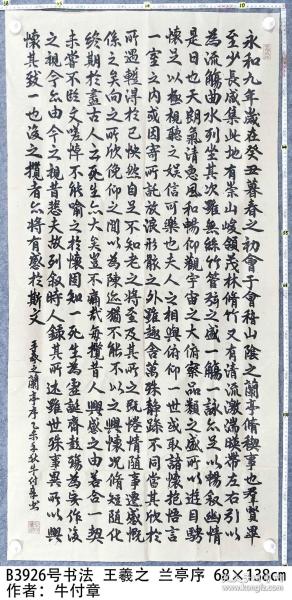 永和九年歲在癸丑暮春之初會于會稽山陰之蘭亭脩稧事也羣賢畢
至少長咸集此地有崇山峻領茂林脩竹又有清流激湍暎帶左右引以
為流觴曲水列坐其次雖無絲竹管弦之盛一觴一詠亦足以暢叙幽情
是日也天朗氣清惠風和暢仰觀宇宙之大俯察品類之盛所以遊目騁
懷足以極視聽之娛信可樂也夫人之相與俯仰一世或取諸懷抱悟言
一室之内或因寄所託放浪形骸之外雖趣舍萬殊靜躁不同當其欣於
所遇蹔得於己怏然自足不知老之將至及其所之既惓情隨事遷感慨
係之矣向之所欣俛仰之間以為陳迹猶不能不以之興懷況脩短隨化
終期於盡古人云死生亦大矣豈不痛哉每攬昔人興感之由若合一契
未嘗不臨文嗟悼不能喻之於懷固知一死生為虛誕齊彭殤為妄作後
之視今亦由今之視昔悲夫故列叙時人錄其所述雖世殊事異所以興
懷其致一也後之攬者亦將有感於斯文
王羲之蘭亭序乙未年秋牛付章書
B3926号书法 王羲之 兰亭序 68×138cm
作者:牛付章